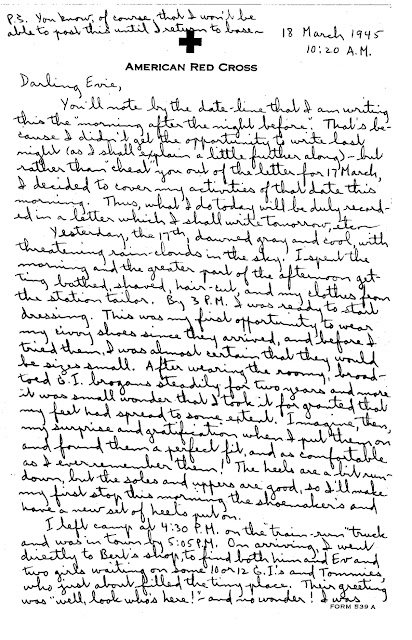 P.S. You know, of course, that I won't be
able to post this until I return to base~
18 March 1945
10:20 A.M.
AMERICAN RED CROSS
Darling Evie,
You'll note by the date-line that I am writing
this the "morning after the night before". That's be-
cause I didn't get the opportunity to write last
night (as I shall explain a little further along) - but
rather than cheat you out of the letter for 17 March,
I decided to cover my activities of that date this
morning. Thus, what I do today will be duly record-
ed in a letter which I shall write tomorrow, etc~
Yesterday, the 17th, dawned gray and cool, with
threatening rain-clouds in the sky. I spent the
morning and the greater part of the afternoon get-
ting bathed, shaved, hair-cut, and my clothes from
the station tailor. By 3 P.M. I was ready to start
dressing. This was my first opportunity to wear
my civvy shoes since they arrived, and before I
tried them, I was almost certain that they would
be sizes small. After wearing the roomy, broad-
toed G.I. brogans steadily for two years and more
it was small wonder that I took it for granted that
my feet had spread to some extent. Imagine, then,
my surprise and gratification when I put them on
and found them a perfect fit, and as comfortable
as I ever remember them! The heels are a bit run-
down, but the soles and uppers are good, so I'll make
my first stop this morning the shoemaker's and
have a new set of heels put on.
I left camp at 4:30 P.M. on the "train-run" truck
and was in town by 5:05 P.M. On arriving, I went
directly to Bert's shop, to find both him and Ev and
two girls waiting on some 10 or 12 G.I's and Tommies,
who just about filled the tiny place. Their greeting
was "well, look who's here!" - and no wonder! I was
FORM 539 A